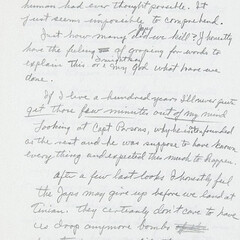 human had ever thought possible. It
just seems impossible to comprehend.
Just how many did we kill? I honestly
have the feeling of groping for words to
explain this or I might say my God what have we
done.
If I live a hundred years I'll never quite
get those few minutes out of my mind
Looking at Capt Parsons, why he is as confounded
as the rest and he was suppose to have known
everything and expected this much to happen.
After a few last looks I honestly feel
the Japs may give up before we land at
Tinian. They certainly don't care to have
us drop anymore bombs